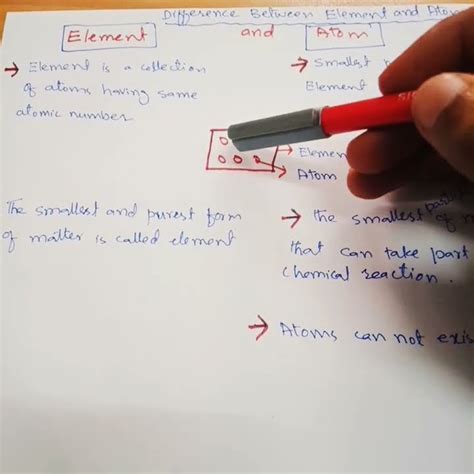 Difference Between Element and Atom
Element and Atom
→ Element is a collection
of atoms having same
atomic number
→ Smallest
Element
→ Element
→ Atom
The smallest and purest form
of matter is called element
→ the smallest particle of
that can take part
chemical reaction.
→ Atoms can not exis